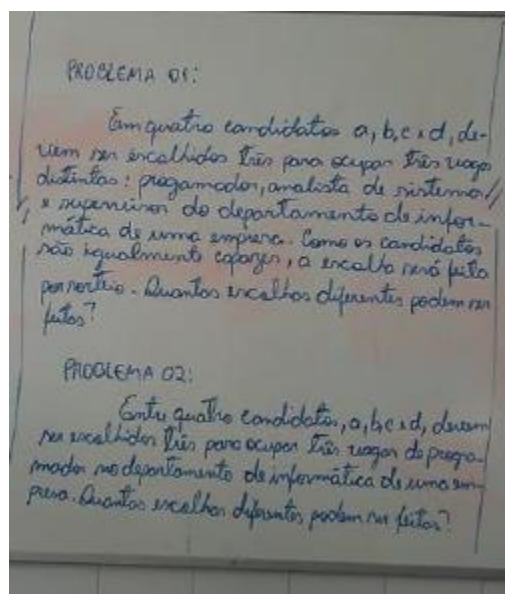 PROBLEMA 01:
Em quatro candidatos a, b, c e d, de-
viam ser escolhidos três para ocupar três vagas
distintas: progamador, analista de sistemas
e supervisor do departamento de infor-
mática de uma empresa. Como os candidatos
são igualmente capazes, a escolha será feita
por sorteio. Quantas escolhas diferentes podem ser
feitas?
PROBLEMA 02:
Entre quatro candidatos, a, b, c e d, devem
ser escolhidos três para ocupar três vagas de progra-
mador no departamento de informática de uma em-
presa. Quantas escolhas diferentes podem ser feitas?